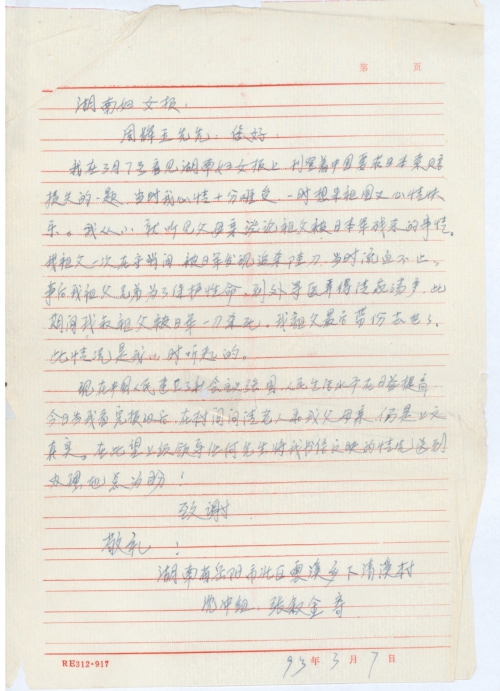 第 页
湖南妇女报：
周辉五先生：您好
我在3月7号看见湖南妇女报上刊登着中国要在日本来赔
损失的一题，当时我心情十分难受，一时想来祖国又心情快
乐。我从小就听见父母亲谈论祖父被日本军残杀的事情。
我祖父一次在 时间被日军发现追来 刀，当时流血不止，
事后我祖父兄弟为了保护性命，到外寻医弄得倾家荡产，此
期间我叔祖父被日军一刀杀死，我祖父最后带伤去世了，
此情况是我小时听起的。
现在中国人民建立了社会主义强国，人民生活水平在日益提高，
今日当我看完报以后，在村间问清老人和我父母亲，仍是上文
真实。在此望上级领导你们先生将我书信反映的情况 到
办理 为盼！
致谢
敬礼！
湖南省岳阳市北区云溪乡下清溪村
冲组：张 金 寄
RE312·917
93年3月7日